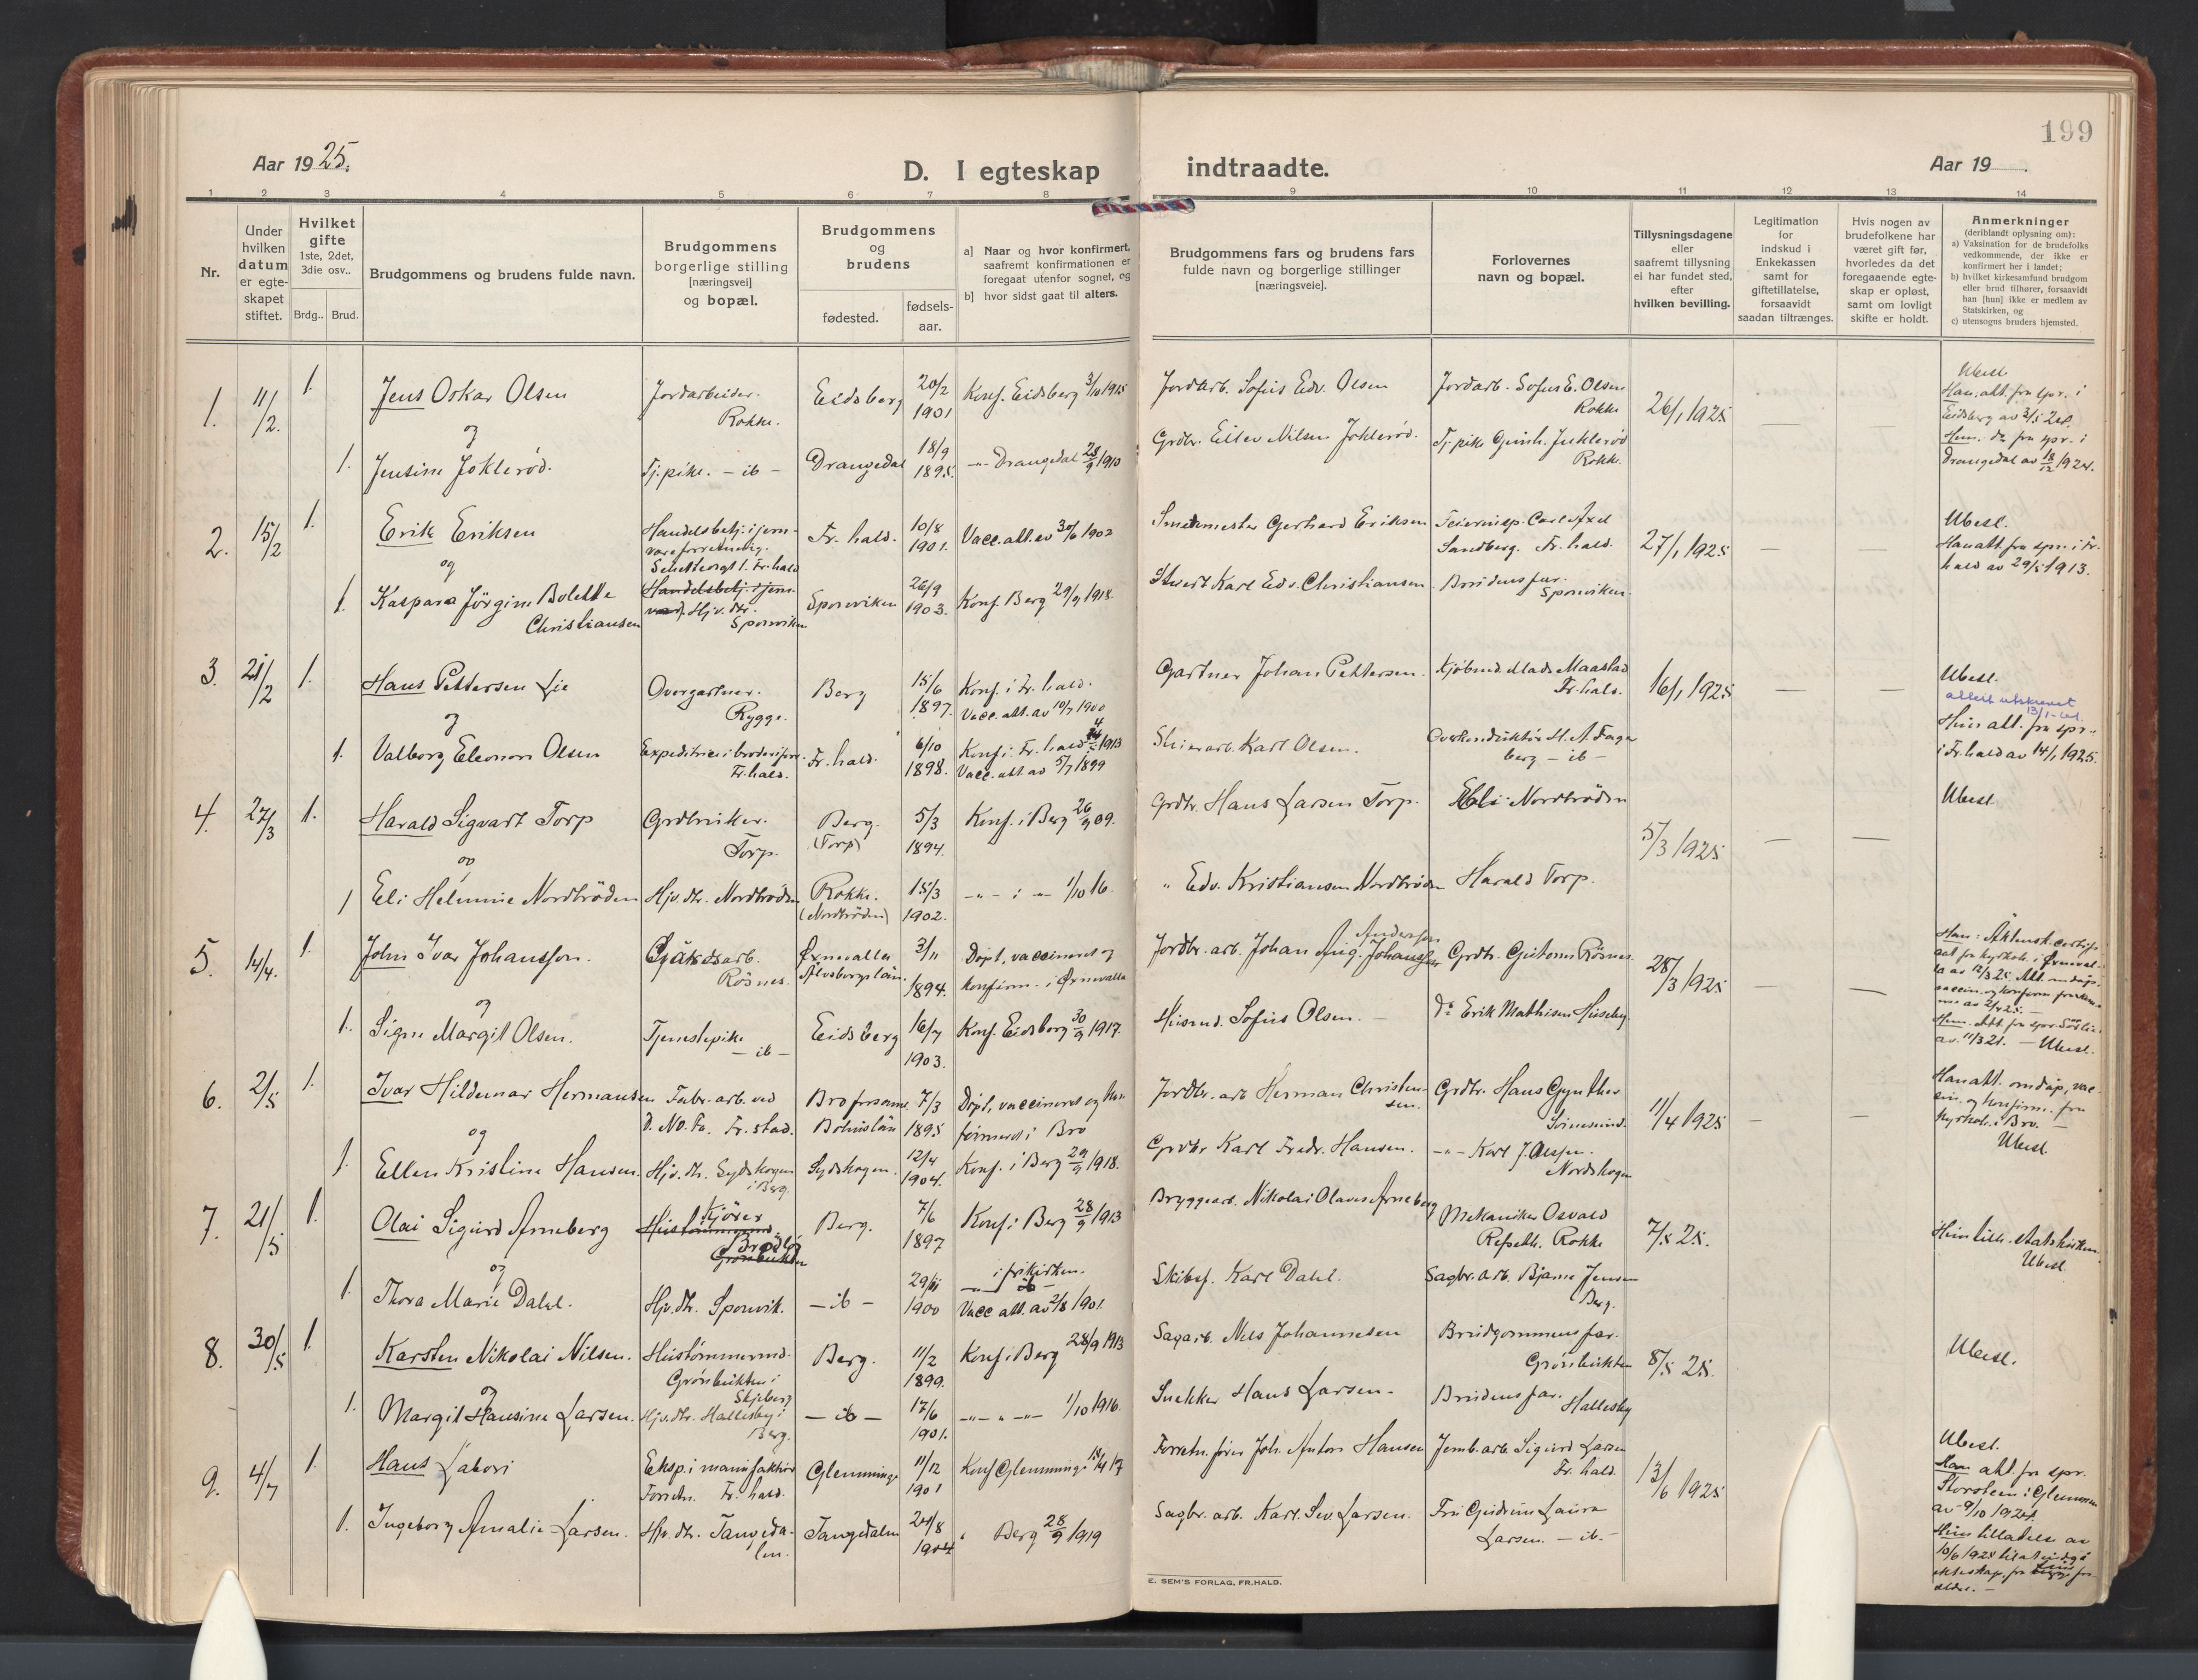 199
Aar 1925.
D. I egteskap indtraadte.
Aar 19
1 2 3 4 5 6 7 8 9 10 11 12 13 14
Nr.
Under
hvilken
datum
er egte-
skapet
stiftet.
Hvilket
gifte
1ste, 2det,
3die osv..
Brdg.. Brud.
Brudgommens og brudens fulde navn.
Brudgommens
borgerlige stilling
[næringsvei]
og bopæl.
Brudgommens
og
brudens
fødested.
fødsels-
aar.
a] Naar og hvor konfirmert,
saafremt konfirmationen er
foregaat utenfor sognet, og
b] hvor sidst gaat til alters.
Brudgommens fars og brudens fars
fulde navn og borgerlige stillinger
[næringsveie].
Forlovernes
navn og bopæl.
Tillysningsdagene
eller
saafremt tillysning
ei har fundet sted,
efter
hvilken bevilling.
Legitimation
for
indskud i
Enkekassen
samt for
giftetillatelse,
forsaavidt
saadan tiltrænges.
Hvis nogen av
brudefolkene har
været gift før,
hvorledes da det
foregaaende egte-
skap er opløst,
samt om lovligt
skifte er holdt.
Anmerkninger
(deriblandt oplysning om):
a) Vaksination for de brudefolks
vedkommende, der ikke er
konfirmert her i landet;
b) hvilket kirkesamfund brudgom
eller brud tilhører, forsaavidt
han [hun] ikke er medlem av
Statskirken, og
c) utensogns bruders hjemsted.
1. 11/2. 1. Jens Oskar Olsen Jordarbeider. Rokke. Eidsberg 20/2 1901 Konf. Eidsberg 3/10 1915 Jordarb. Sofus Edv. Olsen Jordarb. Sofus E. Olsen Rokke 26/1 1925 Ubesl.
og
Han: att. fra spr. i
Eidsberg av
1. Jensine Joklerød. Tj. pike. - ib - Drangedal 18/9 1895. -"- Drangedal 25/9 1910 Grdbr. Eilev Nilsen Joklerød. Tj. pike Gunh. Juklerød Rokke.
Hun. do fra spr. i
Drangedal av 18/12 1924.
2. 15/2 1. Erik Eriksen Handelsbetj. i jern-
vareforretning.
Fr. hald
Fr. hald. 10/8 1901. Vacc. att. av 30/6 1902 Smedmester Gerhard Eriksen Feierinsp. Carl Axel
Sandberg. Fr. hald. 27/1 1925 — — Ubesl.
Han att. fra spr. i Fr.
hald av 29/5 1913.
og
1. Kaspara Jörgine Bolette
Christiansen
Handelsbetj. i jern-
varef. Hjv. dtr.
Sponviken
Sponviken 26/9 1903. Konf. Berg 29/9 1918. Stuert Karl Edv. Christiansen. Brudens far.
Sponviken
3. 21/2 1. Hans Pettersen Lie Overgartner.
Rygge.
Berg 15/6 1897. Konf. i Fr. hald.
Vacc. att. av 10/7 1900
Gartner Johan Pettersen. Kjöbmd. Mads Maastad
Fr. hald. 16/1 1925 — — Ubesl.
attest utskrevet
13/1
og
Hun att. fra spr.
i Fr. hald av 14/1 1925.
1. Valborg Eleonora Olsen Expeditrice i broderiforr.
Fr. hald.
Fr. hald. 6/10 1898. Konf. i Fr. hald 1913
Vacc. att av 5/7 1899
Karl Olsen. Overkonduktör H. A. Fager
berg - ib -
4. 27/3 1. Harald Sigvart Torp Grdbruker.
Torp.
Berg.
(Torp)
5/3 1894. Konf. i Berg 26/9 09. Grdbr. Hans Larsen Torp. Eli Nordbröden 5/3 1925 — — Ubesl.
og
1 Eli Helmine Nordbröden Hjv. dtr. Nordbröden Rokke.
(Nordbröden)
15/3 1902. -"- i -"- 1/10 16. " Edv. Kristiansen Nordbröden Harald Torp.
5. 14/4. 1. John Ivar Johansson. Gårdsarb.
Rösnes.
Örnevalla
Älvsborgslän.
3/11 1894. Döpt, vaccineret og
konfirm. i Örnevalla
Andersson
Jordbr. arb. Johan Aug. Johansson Grdbr. Guttorm Rösnes. 28/3 1925 — —
og
1. Signe Margit Olsen. Tjenestepike
- ib -
Eidsberg 16/7 1903. Konf. Eidsberg 30/9 1917. Husmd. Sofus Olsen. — do Erik Mathisen Huseby.
av 11/3 21. - Ubesl.
6. 2/5 1. Ivar Hildemar Hermansen Fabr. arb. ved
D. No. Fa. Fr. stad.
Bro
Bohuslän
7/3 1895 Döpt, vaccineret og kon-
firmeret i Bro
Jordbr. arb Herman Christen-
sen.
Grdbr. Hans Gynther
Svinesund. 11/4 1925 — — Han att. om dåp, vac-
cin. og konfirm. fra
kyrkoh. i Bro. —
Ubesl.
og
1. Ellen Kristine Hansen. Hjv. dtr. Sydskogen
i Berg.
Sydskogen. 12/4 1904. Konf. i Berg 29/9 1918. Grdbr Karl Fredr. Hansen. -"- Karl J. Olsen.
Nordskogen
7. 21/5 1. Olai Sigurd Arneberg Kjörer
Berg. 7/6 1897 Konf. i Berg 28/9 1913 Bryggearb. Nikolai Olaves Arneberg Mekaniker Osvald
Rokke 7/5 25. Hun tilh. statskirken.
Ubesl.
og
1. Thora Marie Dahl. Hjv. dtr. Sponvik. - ib - 29/ 1900 i frikirken.
Vacc att. av 2/8 1901.
Skibsf. Karl Dahl. Sagbr. arb. Bjarne Jensen
Berg.
8. 30/5 1. Karsten Nikolai Nilsen. Hustömmermd.
Grönbukten i
Skjeberg
Berg. 11/2 1899. Konf. i Berg 28/9 1913 Sagarb. Nils Johannesen Brudgommens far.
Grönbukten 8/5 25. Ubesl.
og
1. Margit Hansine Larsen. Hjv. dtr. Hallesby i
Berg.
- ib - 17/6 1901. -"- " -"- 1/10 1916. Snekker Hans Larsen - Brudens far.
Hallesby
9. 4/7 1. Hans Labori Eksp. i manufaktur
Forretn. Fr. hald.
Glemminge 11/12 1901 Konf Glemminge Forretn. fører Joh. Anton Hansen Jernb. arb. Sigurd Larsen
Fr. hald. 13/6 1925 Ubesl.
Han att. fra spr.
Torsteen i Glemmen
av 9/10 1924.
1. Ingeborg Amalie Larsen. Hjv. dtr. Tangeda-
len.
Tangedalen 24/8 1904 " Berg 28/9 1919 Sagbr. arb. Karl Sev. Larsen. Fru Gudrun Laura
Larsen. - ib -
Hun tilladelse av
10/6 1925 til at indgå
ekteskap fra for-
ældre. -
E. SEM'S FORLAG, FR.HALD.